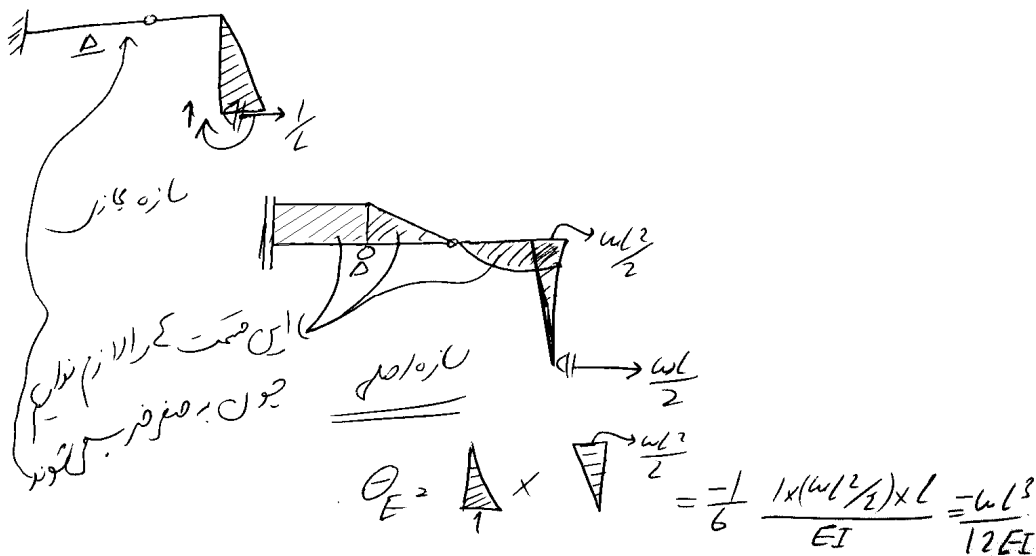 1/L
سازه مجازی
ωl²/2
Δ
این قسمت ها را لازم نداریم
چون به صفر ضرب می شوند
سازه اصلی
ωl/2
θ_E = 1 × ωl²/2 = -1/6 1×(ωl²/2)×l/EI = -ωl³/12EI